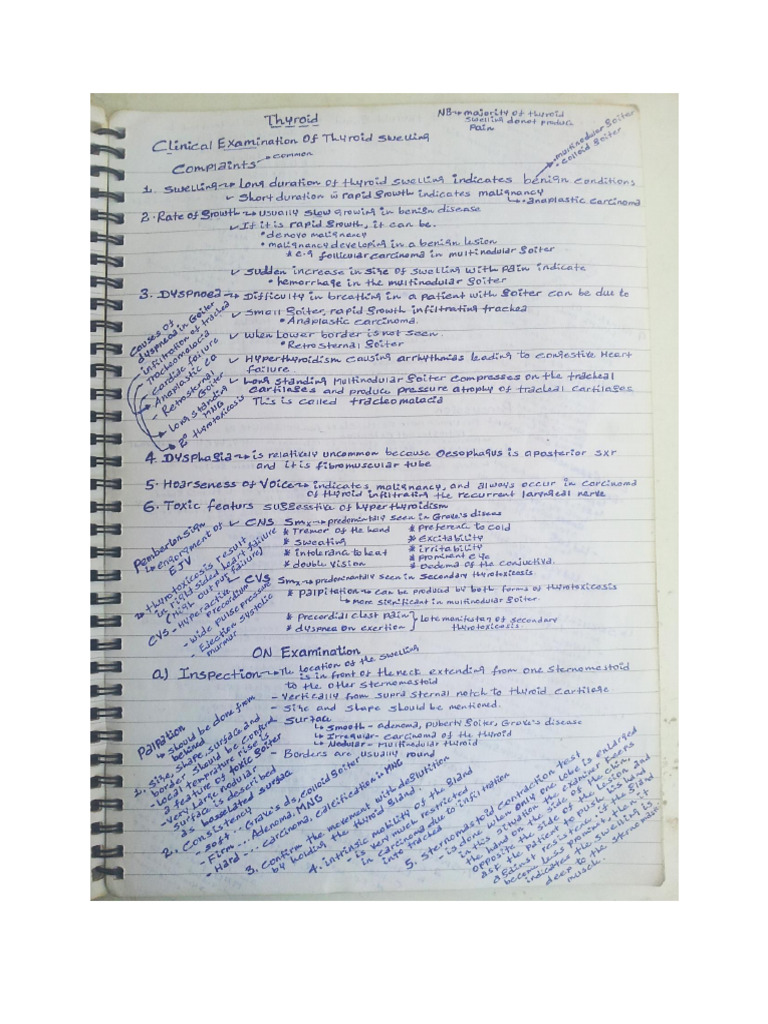 Thyroid
NB → majority of thyroid
swelling donot produce
Pain
Clinical Examination Of Thyroid Swelling
Complaints → common
• multinodular Goiter
• colloid Goiter
1. Swelling → Long duration of thyroid swelling indicates benign conditions
✓ Short duration w rapid growth indicates malignancy
↳ • anaplastic carcinoma
2. Rate of Growth → usually slow growing in benign disease
✓ If it is rapid Growth, it can be.
• denovo malignancy
• malignancy developing in a benign lesion
* e.g follicular carcinoma in multinodular Goiter
✓ Sudden increase in size of swelling with pain indicate
• hemorrhage in the multinodular Goiter
3. Dyspnoea → Difficulty in breathing in a patient with Goiter can be due to
✓ Small Goiter, rapid Growth infiltrating trachea
• Anaplastic carcinoma.
✓ When Lower border is not seen.
• Retrosternal Goiter
✓ Hyperthyroidism causing arrhythmias leading to congestive Heart
failure.
✓ Long standing Multinodular Goiter compresses on the tracheal
cartilages and produce pressure atrophy of tracheal cartilages
This is called tracheomalacia
Causes of
dyspnea in Goiter
infiltration of trachea
Tracheomalacia
- Cardiac failure
- Anaplastic Ca
- Retrosternal
Goiter
- Long standing
MNG
- 2° thyrotoxicosis
4. Dysphagia → is relatively uncommon because Oesophagus is a posterior sxr
and it is fibromuscular tube
5. Hoarseness of Voice → indicates malignancy, and always occur in carcinoma
of thyroid infiltrating the recurrent laryngeal nerve
6. Toxic featurs suggestive of hyperthyroidism
✓ CNS Smx → predominantly seen in Grave's disease
* Tremor of the hand
* sweating
* intolerance to heat
* double vision
* preference to cold
* excitability
* irritability
* prominent eye
* Oedema of the conjuctiva.
✓ CVS Smx → predominantly seen in Secondary thyrotoxicosis
* Palpitation → can be produced by both forms of thyrotoxicosis
↳ more significant in multinodular Goiter.
* precordial chest pain
* dyspnea on exertion } Late manifestn of secondary
thyrotoxicosis.
Pemberton sign
↳ engorgment of
EJV
→ thyrotoxicosis result
in right sided heart failure
(High output failure)
CVS - Hyperactive
precordium
- Wide pulse pressure
- Ejection systolic
murmur
ON Examination
a.) Inspection → The location of the swelling
is in front of the neck extending from one sternomastoid
to the other sternomastoid
- Vertically from supra sternal notch to thyroid cartilage
- Size and Shape should be mentioned.
- Surface
↳ Smooth - adenoma, Puberty Goiter, Grave's disease
↳ Irregular - carcinoma of the thyroid
↳ Nodular - Multinodular thyroid
- Borders are usually round
Palpation
↳ should be done from
behind
1. Size, shape, surface and
border should be confirmed
- Local temprature rise is
a feature of toxic Goiter
- Very Large nodular
surface is described
as bosselated surface
2. Consistency
- Soft... Grave's ds, Colloid Goiter
- Firm... Adenoma, MNG
- Hard... carcinoma, calcification in MNG
3. Confirm the movement with deglutition
by holding the thyroid Gland.
4. intrinsic mobility of the Gland
- is very much restricted
in carcinoma due to infiltration
into trachea
5. Sternomastoid contraction test
- is done when only one lobe is enlarged
in this situation the examiner keeps
the hand on the side of the chin,
opposite the side of the lesion and
ask the patient to push his hand
against resistence. if the Gland
become less prominent, then it
indicates the swelling is
deep to the sternomastoid
muscle.